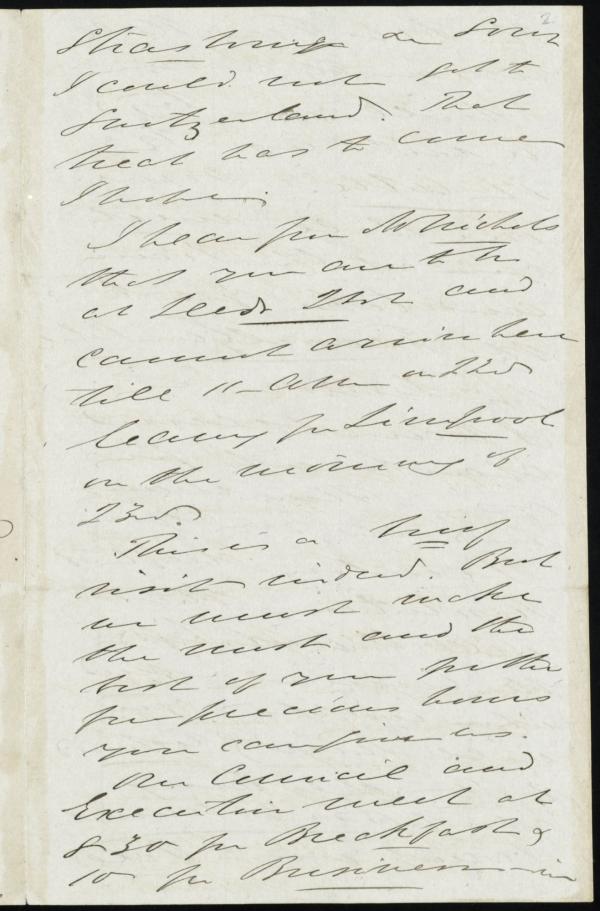 2
Strasbourg & so
I could not get to
Switzerland. That
treat has to come
I hope.
I hear from Mr Nichols
that you are to be
at Leeds 21st and
cannot arrive here
till 11-am on 22nd
leaving for Liverpool
on the morning of
23rd.
This is a brief
visit indeed. But
we must make
the most and the
best of you for the
few precious hours
you can give us.
Our Council and
Executive meet at
8 30 for Breakfast &
10 for Business - in